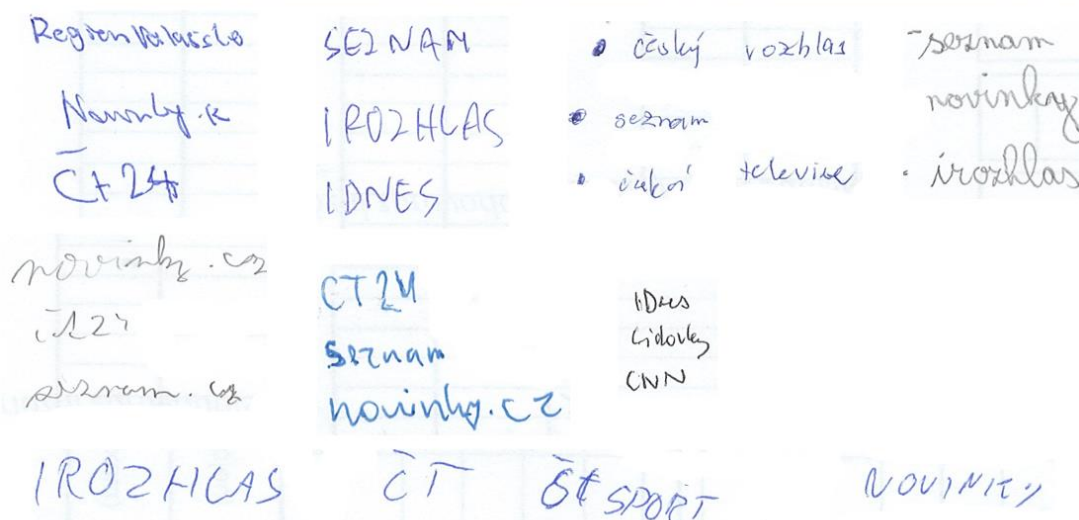 Region Valassko
Novinky.cz
Čt 24
SEZNAM
IROZHLAS
IDNES
český rozhlas
seznam
televize
-seznam
novinky
irozhlas
novinky.cz
čt24
seznam.cz
CT24
seznam
novinky.cz
IDnes
Lidovky
CNN
IROZHLAS ČT ČT SPORT NOVINKY